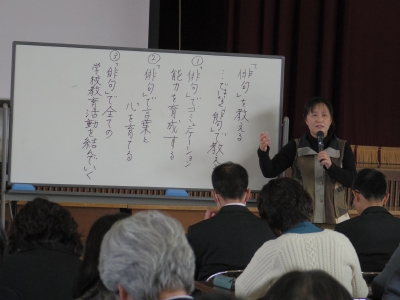 「俳句」を教える
…でなく「俳句」で教え
①「俳句」でコミュニケーション
能力を育成する
②「俳句」で言葉と
心を育てる
③「俳句」で全ての
学校教育活動を結んでいく